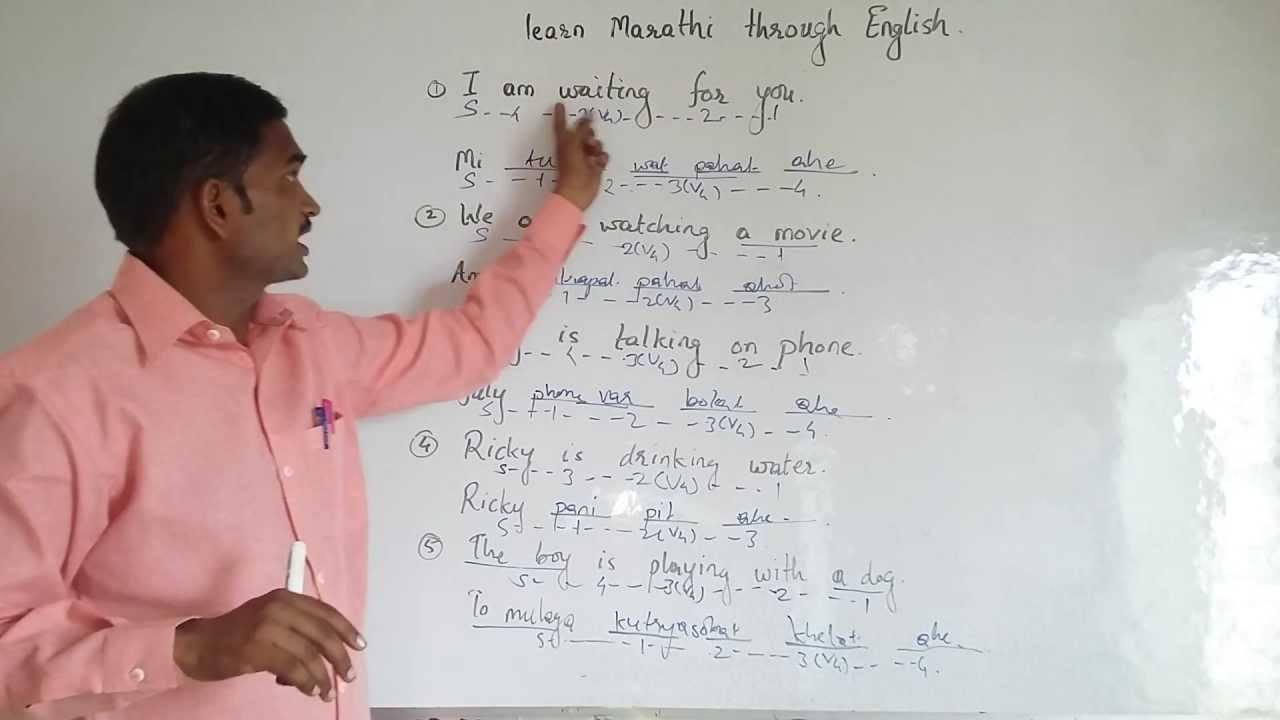 learn Marathi through English.
① I am waiting for you.
S - - 4 - - 3(V4) - - - - 2 - - - 1
Mi wat pahat ahe.
S - - 1 - 2 - - - 3(V4) - - - 4.
② We watching a movie.
S - 2(V4) - - - - 1
pahat ahot.
1 - - 2(V4) - - - - 3
is talking on phone.
- - 4 - - - 3(V4) - - 2 - 1
phone var bolat ahe.
S - - 1 - - - 2 - - 3(V4) - - 4.
④ Ricky is drinking water.
S - - - 3 - - - 2(V4) - - - 1
Ricky pani pit ahe.
S - - - 1 - - - - 2(V4) - - - 3
⑤ The boy is playing with a dog.
S - - 4 - - - 3(V4) - - - - 2 - - - - 1
To mulaga kutryasobat khelat ahe.
S - - 1 - - 2 - - - - 3(V4) - - - - 4.